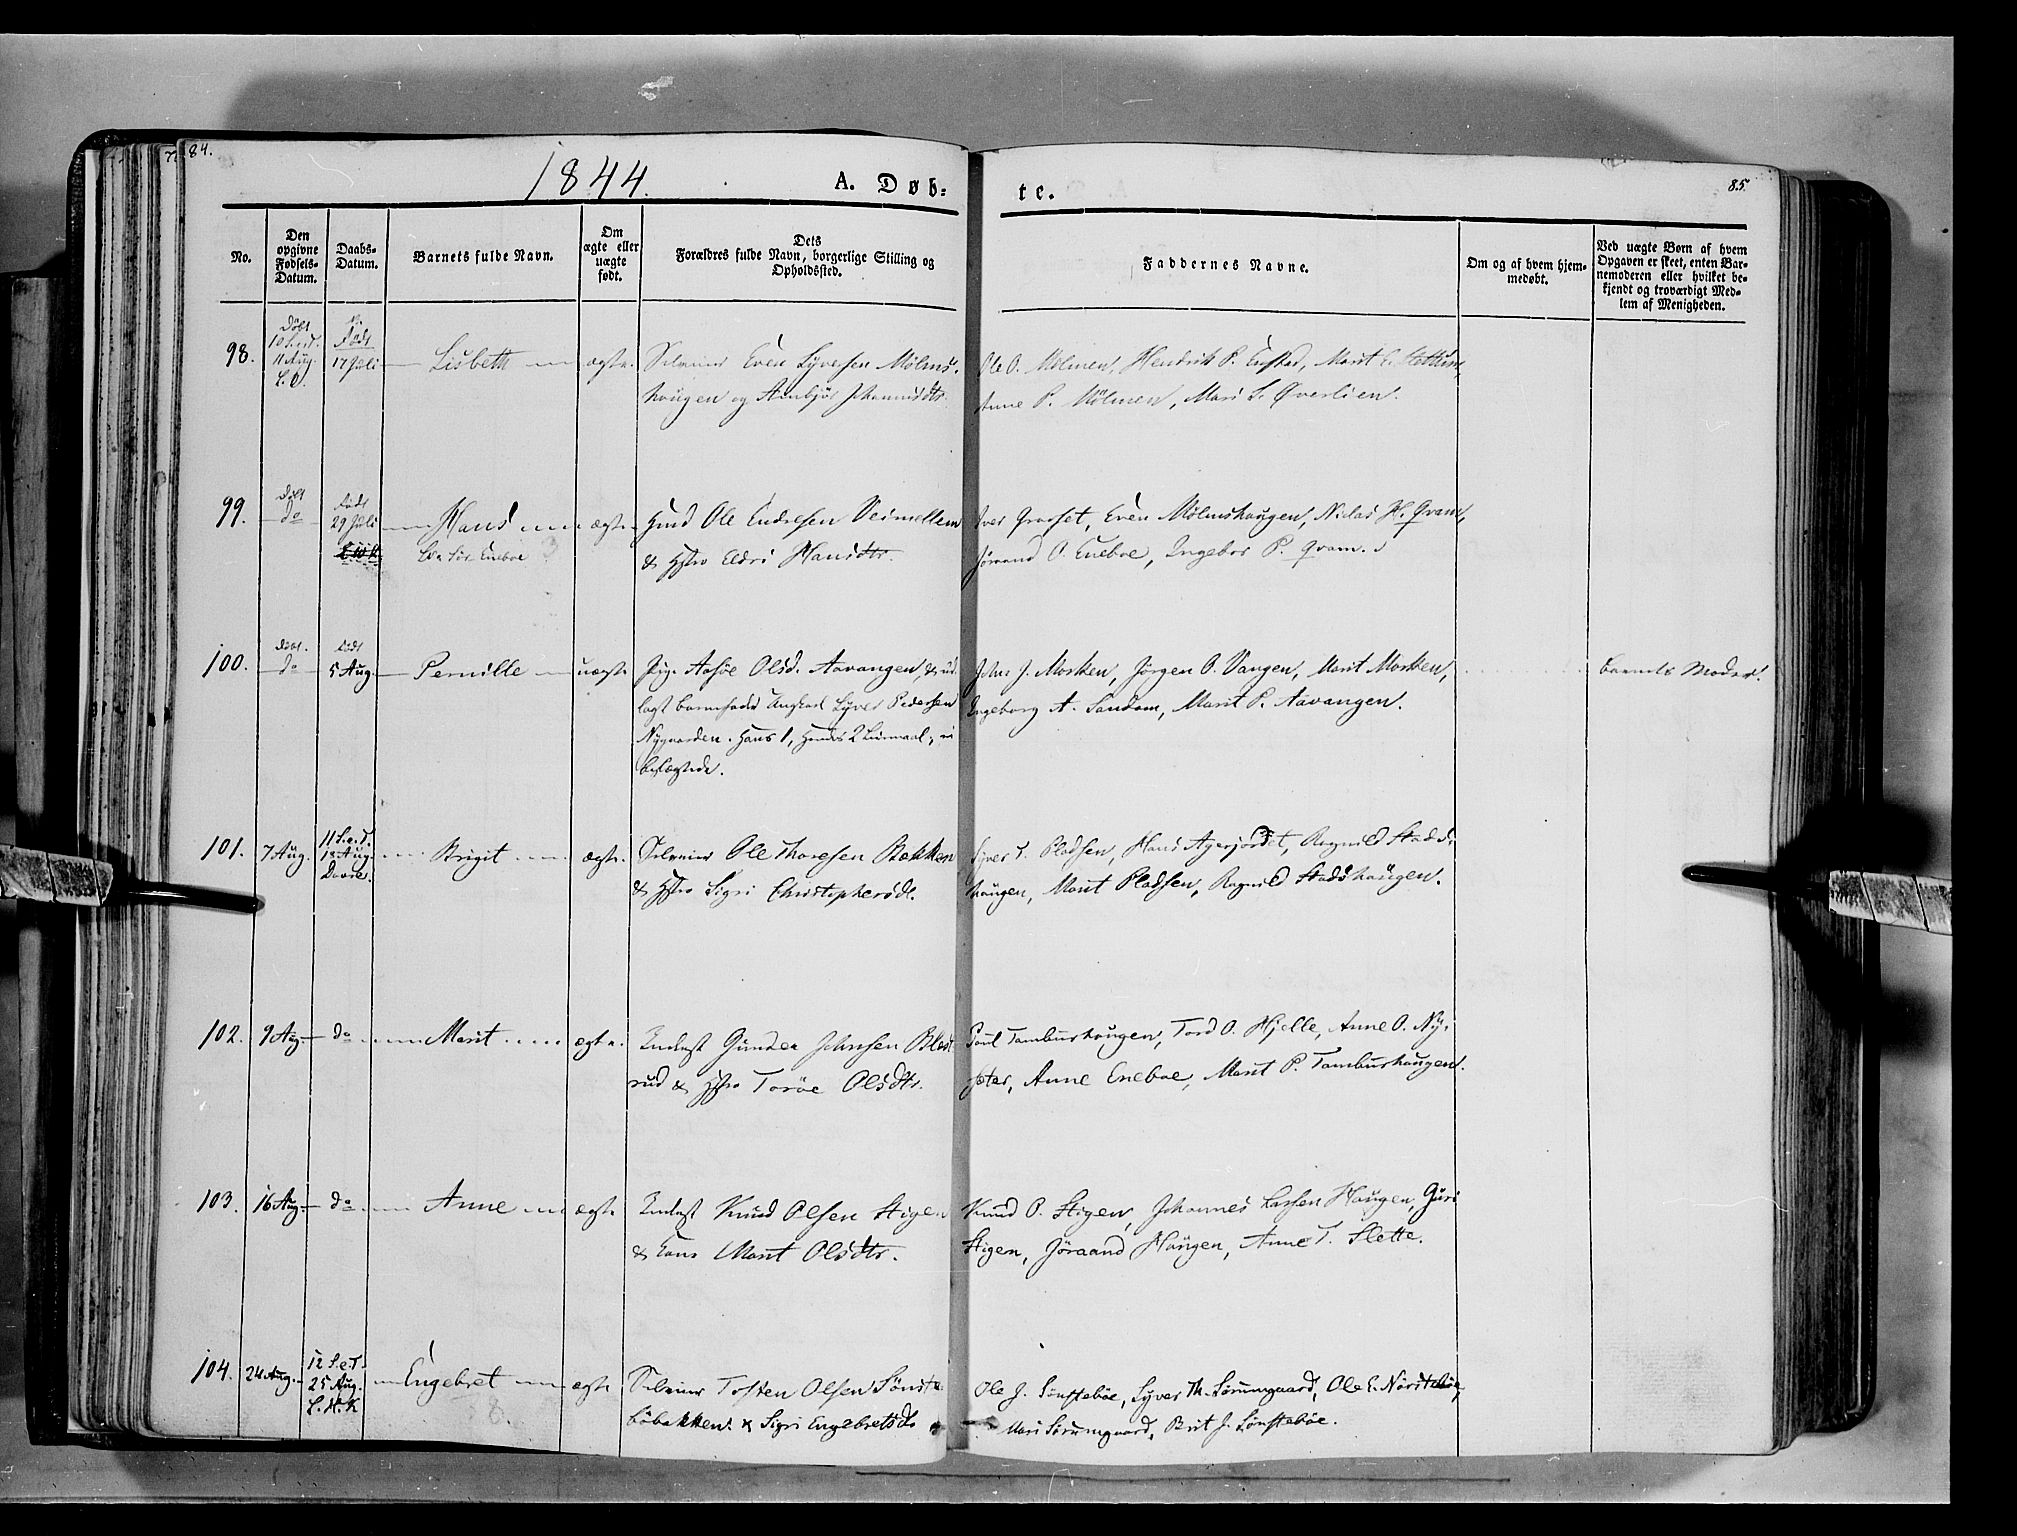 84.
1844.
A. Døb=
te.
85.
No.
Den opgivne Fødsels-Datum.
Daabs-Datum.
Barnets fulde Navn.
Om ægte eller uægte født.
Dets Forældres fulde Navn, borgerlige Stilling og Opholdssted.
Faddernes Navne.
Om og af hvem hjem-medøbt.
Ved uægte Børn af hvem Opgaven er skeet, enten Bar-nemoderen eller hvilket be-kjendt og troværdigt Med-lem af Menigheden.
98.
Døbt
10 S. e. T.
11 Aug.
Født
17 Juli
Lisbeth
ægte.
Even Syversen Mølms-
haugen og Annbjør Johannisdtr.
Ole O. Mølmen, Hendrik P. Enstad, Marit E. Slettum,
Anne P. Mølmen, Mari S. Øverlien.
99.
Døbt
do
Født
29 Juli
Hans
Eneboe
ægte
Gmd Ole Endresen Veimellem
& Hstro Eldri Hansdtr.
Iver Graeset, Even Mølmshaugen, Niclas H. Qvam,
Jøraand O. Eneboe, Ingebor P. Qvam.
100.
Døbt.
do
Født
5 Aug.
Pernille
uægte
Pige Aasøe Olsd. Aavangen, & ud
lagt barnefader Ungkarl Syver Pedersen
Nygaarden. Hans 1, Hendes 2 Leiermaal;
beslægtede.
John J. Morken, Jørgen O. Vangen, Marit Morken,
Ingeborg A. Sandom, Marit P. Aavangen.
barnets Moder.
101.
7 Aug.
11 S. e. T.
18 Aug.
Dovre.
Brigit
ægte.
Ole Thoresen Bækken
& Hstro Sigri Christophersdt.
Syver T. Pladsen, Hans Agerjordet, Ragnild Stads-
haugen, Marit Pladsen, Ragnild Stadshaugen.
102.
9 Aug.
do
Marit
ægte.
Inderst Gunder Johnsen Blæst
rud & Hstro Torøe Olsdtr.
Poul Tamburhaugen, Tord O. Hjelle, Anne O. Ny-
Anne Eneboe, Marit P. Tamburhaugen.
103.
16 Aug.
do
Anne
ægte
Inderst Knud Olsen Stigen
& Kone Marit Olsdtr.
Knud O. Stigen, Johannes Larsen Haugen, Guri
Stigen, Jøraand Haugen, Anne T. Slette.
104.
24 Aug.
12 S. e. T.
25 Aug.
L. H. K
Engebret
ægte
Tosten Olsen Sønste
bøbakken & Sigri Engebretsd.
Ole J. Sønstebøe, Syver Th. Sørumgaard, Ole E. Nordstebøe,
Mari Sørumgaard, Brit J. Sønstebøe.